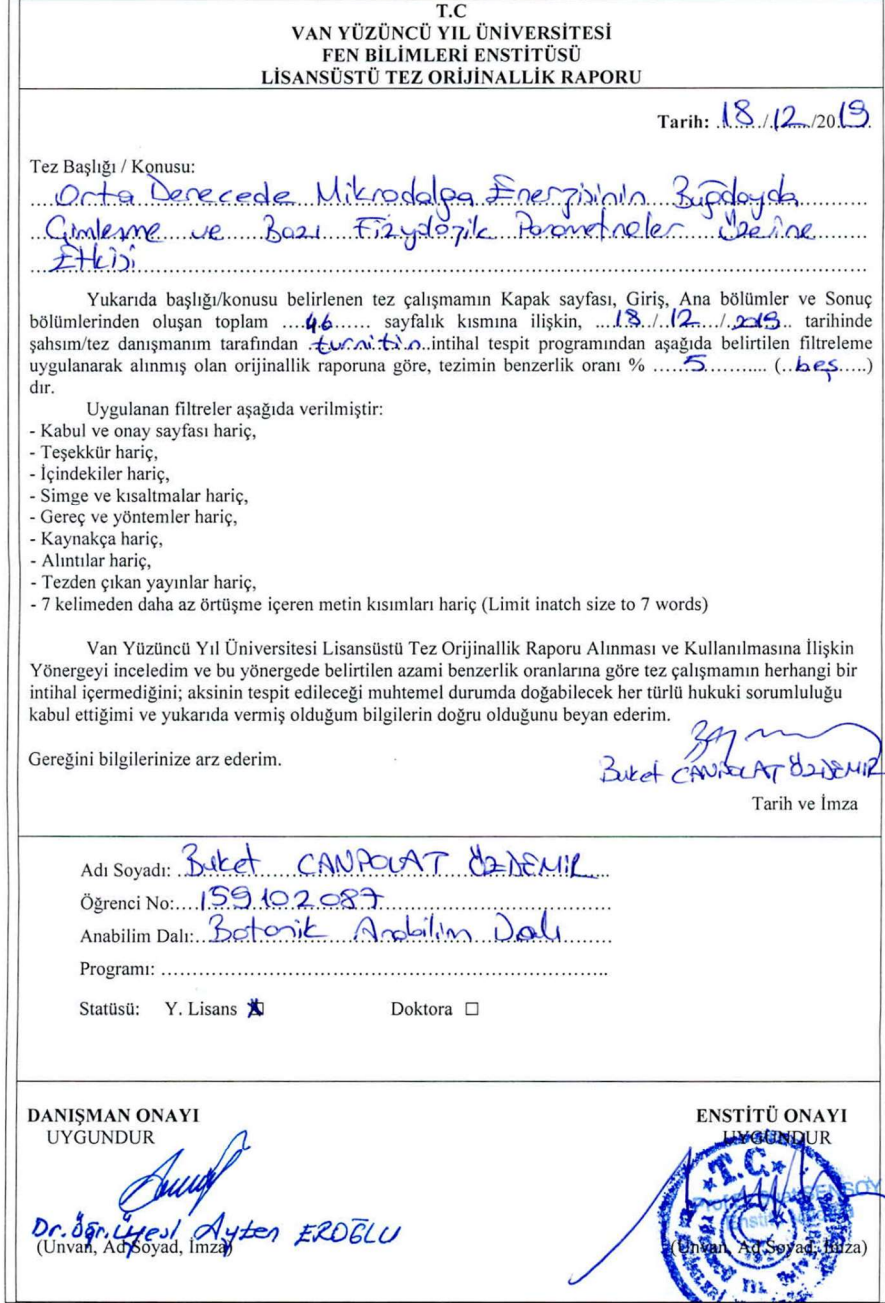 T.C
VAN YÜZÜNCÜ YIL ÜNİVERSİTESİ
FEN BİLİMLERİ ENSTİTÜSÜ
LİSANSÜSTÜ TEZ ORİJİNALLİK RAPORU
Tarih: 18/12/2019
Tez Başlığı / Konusu:
Orta Derecede Mikrodalga Enerjisinin Buğdayda
Çimlenme ve Bazı Fizyolojik Parametreler Üzerine
Etkisi
Yukarıda başlığı/konusu belirlenen tez çalışmamın Kapak sayfası, Giriş, Ana bölümler ve Sonuç
bölümlerinden oluşan toplam ....46...... sayfalık kısmına ilişkin, ...18../..12..../..2019.. tarihinde
şahsım/tez danışmanım tarafından .turnitin..intihal tespit programından aşağıda belirtilen filtreleme
uygulanarak alınmış olan orijinallik raporuna göre, tezimin benzerlik oranı % .....5........... (..beş.....)
dır.
Uygulanan filtreler aşağıda verilmiştir:
- Kabul ve onay sayfası hariç,
- Teşekkür hariç,
- İçindekiler hariç,
- Simge ve kısaltmalar hariç,
- Gereç ve yöntemler hariç,
- Kaynakça hariç,
- Alıntılar hariç,
- Tezden çıkan yayınlar hariç,
- 7 kelimeden daha az örtüşme içeren metin kısımları hariç (Limit inatch size to 7 words)
Van Yüzüncü Yıl Üniversitesi Lisansüstü Tez Orijinallik Raporu Alınması ve Kullanılmasına İlişkin
Yönergeyi inceledim ve bu yönergede belirtilen azami benzerlik oranlarına göre tez çalışmamın herhangi bir
intihal içermediğini; aksinin tespit edileceği muhtemel durumda doğabilecek her türlü hukuki sorumluluğu
kabul ettiğimi ve yukarıda vermiş olduğum bilgilerin doğru olduğunu beyan ederim.
Gereğini bilgilerinize arz ederim.
Buket CANPOLAT ÖZDEMİR
Tarih ve İmza
Adı Soyadı: Buket CANPOLAT ÖZDEMİR
Öğrenci No:....159102087
Anabilim Dalı:..Botanik Anabilim Dalı
Programı: ....................................................................
Statüsü: Y. Lisans ☒ Doktora ☐
DANIŞMAN ONAYI
UYGUNDUR
Dr. Öğr. Üyesi Ayten EROĞLU
(Unvan, Ad Soyad, İmza)
ENSTİTÜ ONAYI
UYGUNDUR
T.C.
ŞENSOY
(Unvan, Ad Soyad, İmza)